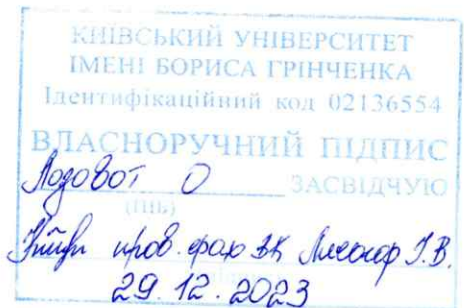 КИЇВСЬКИЙ УНІВЕРСИТЕТ
ІМЕНІ БОРИСА ГРІНЧЕНКА
Ідентифікаційний код 02136554
ВЛАСНОРУЧНИЙ ПІДПИС
О ЗАСВІДЧУЮ
(ПІБ)
пров. фах ВК
29.12.2023